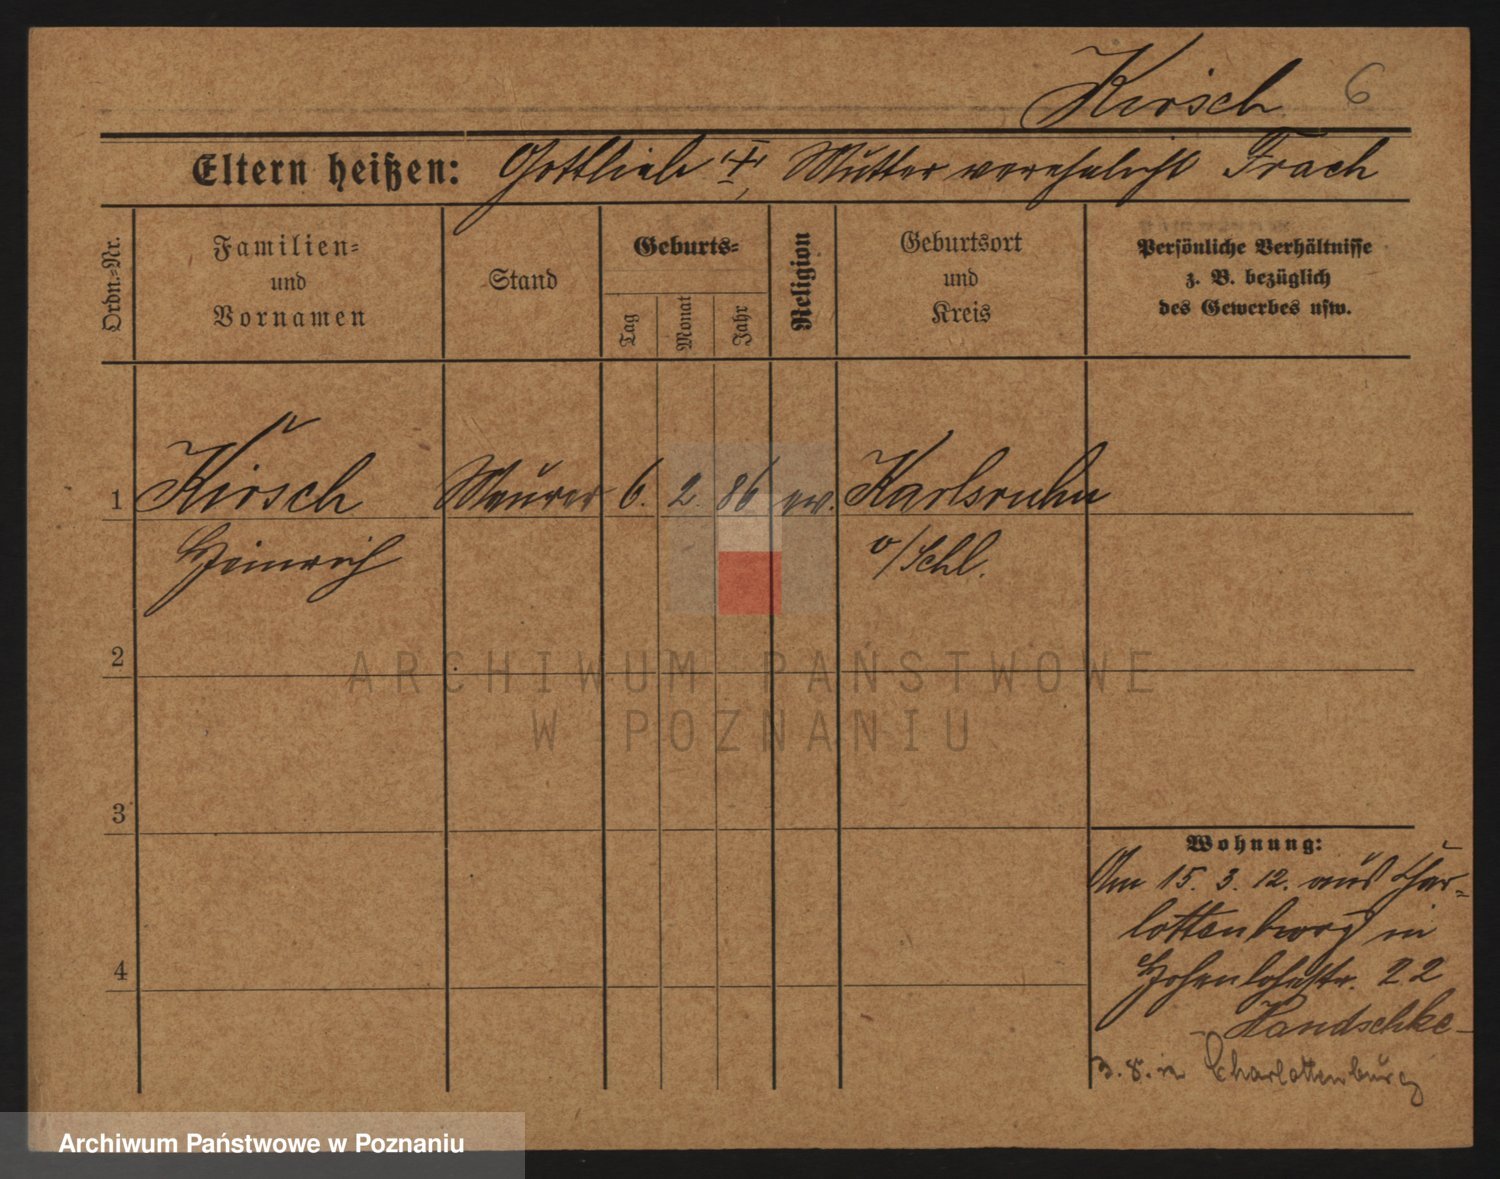 Kirsch 6
Eltern heißen: Gottlieb ‡, Mutter verehelicht Frach
Ordn.=Nr.
Familien=
und
Vornamen
Stand
Geburts=
Tag
Monat
Jahr
Religion
Geburtsort
und
Kreis
Persönliche Verhältnisse
z. B. bezüglich
des Gewerbes usw.
1 Kirsch Maurer 6. 2. 86 ev. Karlsruhe
Heinrich o/Schl.
2
3
4
Wohnung:
Am 15. 3. 12. aus Char-
lottenburg in
Hohenlohestr. 22
- Handschke -
3. 8. in Charlottenburg
ARCHIWUM PAŃSTWOWE
W POZNANIU
Archiwum Państwowe w Poznaniu